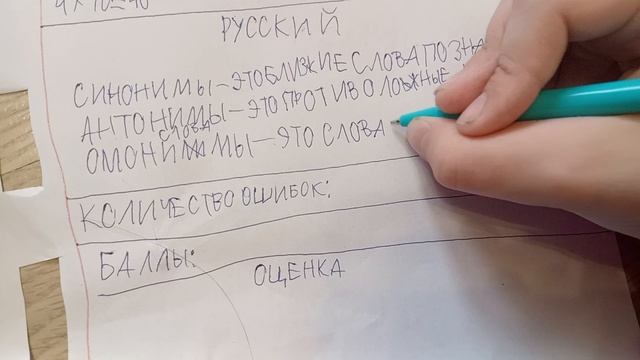 4 х 10 = 40
РУССКИЙ
СИНОНИМЫ – ЭТО БЛИЗКИЕ СЛОВА ПО
АНТОНИМЫ – ЭТО ПРОТИВОЛОЖНЫЕ
СЛОВА
ОМОНИМЫ – ЭТО СЛОВА
КОЛИЧЕСТВО ОШИБОК:
БАЛЛЫ:
ОЦЕНКА